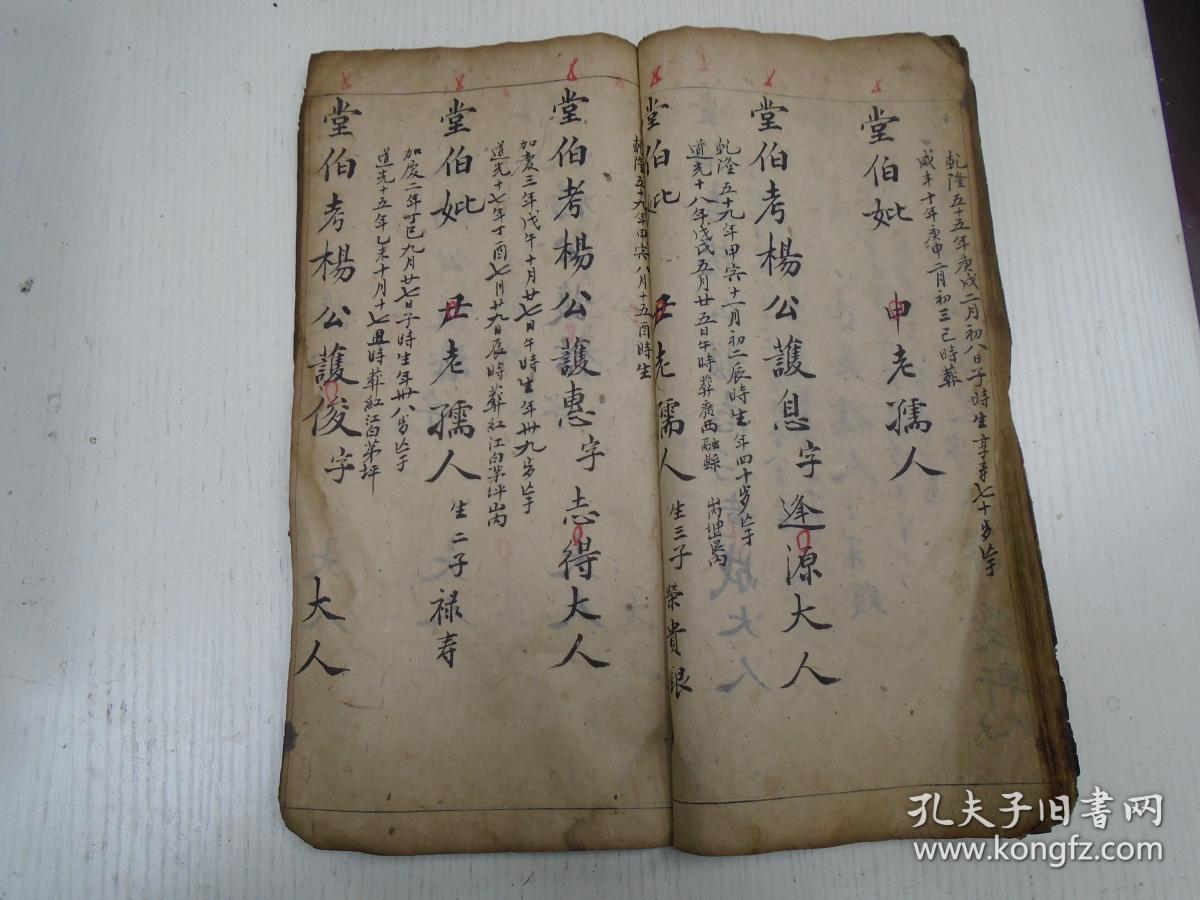 乾隆五十五年庚戌二月初八日子時生享寿七十岁亡于
咸丰十年庚申二月初三巳時葬
堂伯妣 申老孺人
堂伯考楊公護息字逢源大人
乾隆五十九年甲寅十一月初二辰時生年四十岁亡于
道光十八年戊戌五月廿五日午時葬廣西融縣
堂伯妣 丑老孺人 生三子榮貴銀
乾隆五十九年甲寅八月十五酉時生
堂伯考楊公護惠字志得大人
加慶三年戊午十月廿七日午時生年卅九岁亡于
道光十七年丁酉七月廿九日辰時葬紅江白茅坪
堂伯妣 丑老孺人 生二子禄寿
加慶二年丁巳九月廿七日子時生年卅八岁亡于
道光十五年乙未十月十七丑時葬紅江白茅坪
堂伯考楊公護俊字 大人
孔夫子旧书网
www.kongfz.com